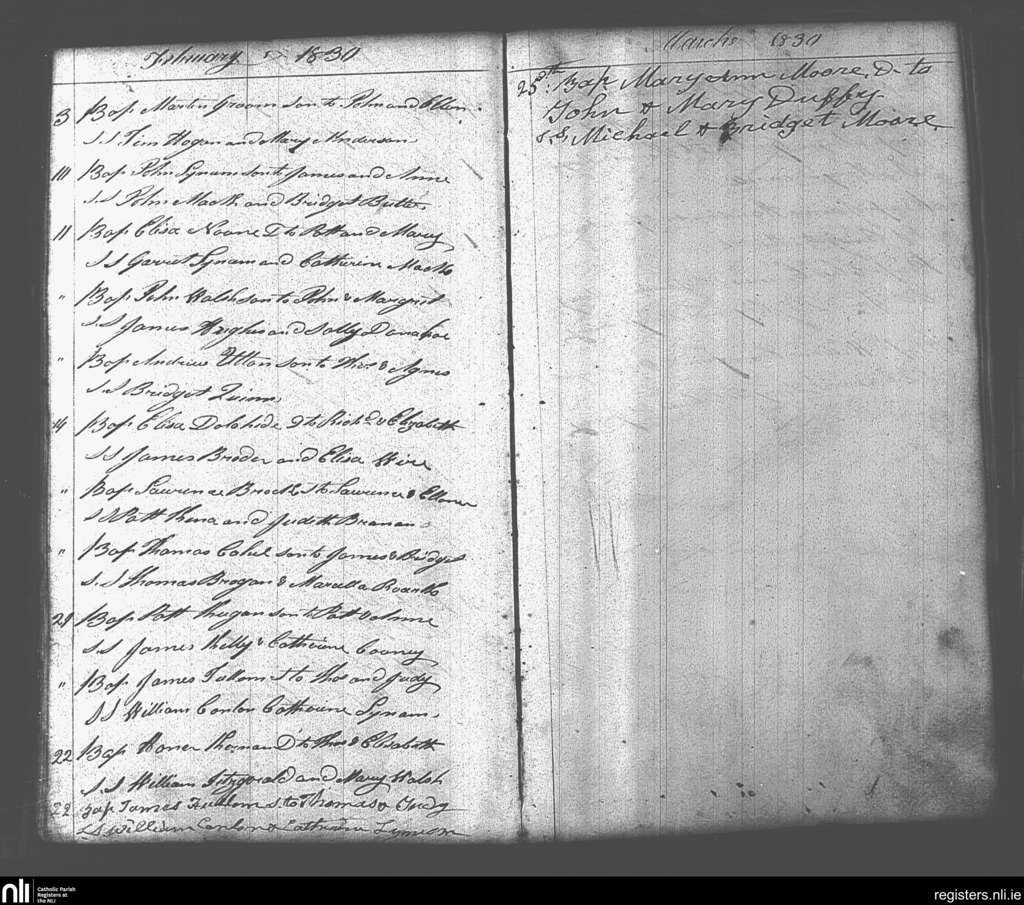 February 1830
3 Bap Martin Groom son to John and Ellen
S S Tim Hogan and Mary Anderson
10 Bap John Lynam son to James and Anne
S S John Mack and Bridget Butler
11 Bap Elisa Noone D to Patt and Mary
S S Garret Lynam and Catherine Mack
" Bap John Walsh son to John & Margret
S S James Hughes and Sally Donahoe
" Bap Andrew son to Thos & Agnes
S S Bridget Quinn
14 Bap Elisa D to Richd & Elizabeth
S S James Broder and Elisa Wire
" Bap Lawrence Brock S to Lawrence &
S S Patt and Judith Branan
" Bap Thomas Cahel son to James & Bridget
S S Thomas Brogan & Marcella
21 Bap Patt son to Pat & Anne
S S James Kelly & Catherine Cooney
" Bap James Fullom S to Thos and Judy
S S William Conlon Catherine Lynam
22 Bap Honor D to Thos & Elisabeth
S S William Fitzgerald and Mary Walsh
22 Bap James Fullom S to Thomas & Judy
S S William Conlon & Catherine Lynam
March 1830
25th Bap Mary Ann Moore, D. to
John & Mary Duffy
S S, Michael & Bridget Moore
nli Catholic Parish
Registers at
the NLI
registers.nli.ie